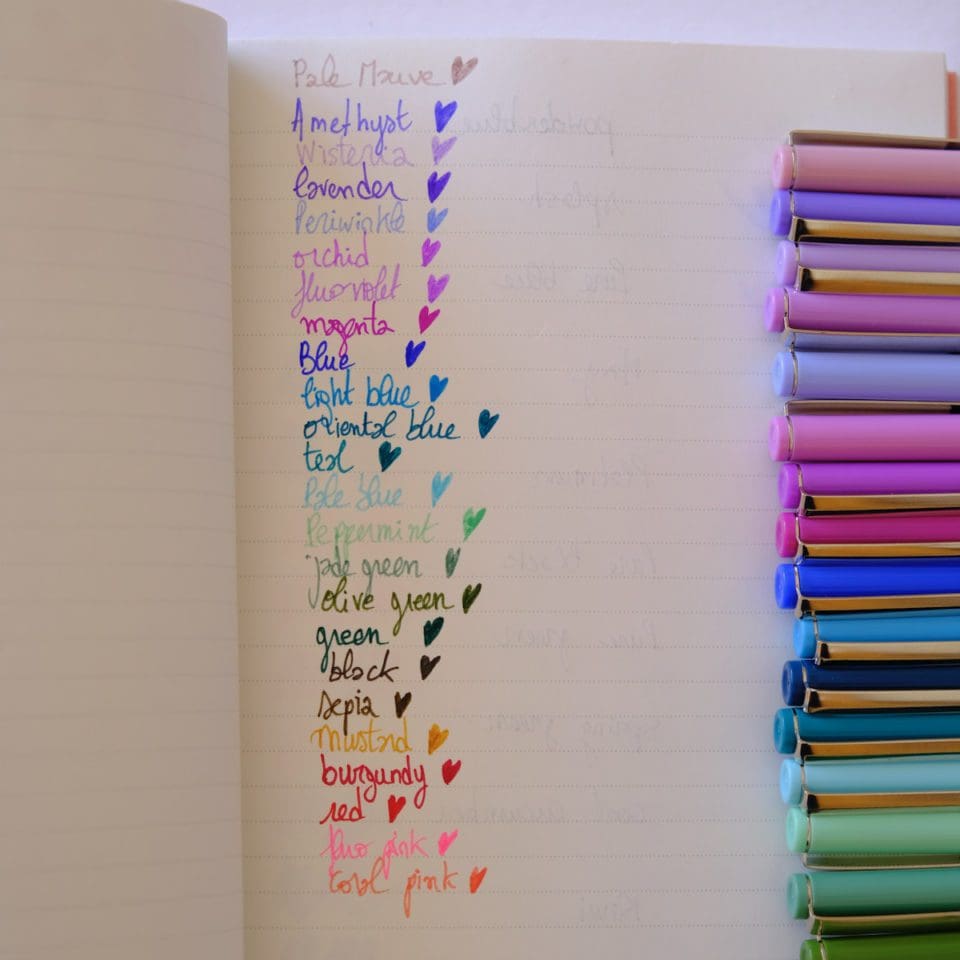 Pale Mauve
Amethyst
Wisteria
lavender
Periwinkle
orchid
fluo violet
magenta
Blue
light blue
oriental blue
teal
Pale blue
Peppermint
jade green
olive green
green
black
sepia
mustard
burgundy
red
fluo pink
coral pink
powder blue
splash
spring green
Kiwi